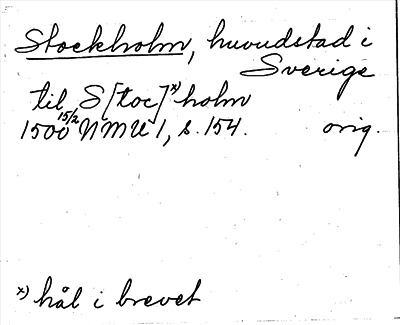 Stockholm, huvudstad i
Sverige
til S[toc]x)holm
1500 15/2 NMU 1, s. 154. orig.
x) hål i brevet